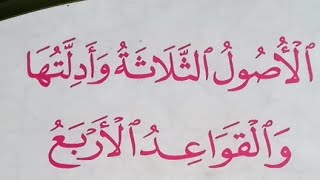 ٱلْأُصُولُ ٱلثَّلَاثَةُ وَأَدِلَّتُهَا
وَٱلْقَوَاعِدُ ٱلْأَرْبَعُ